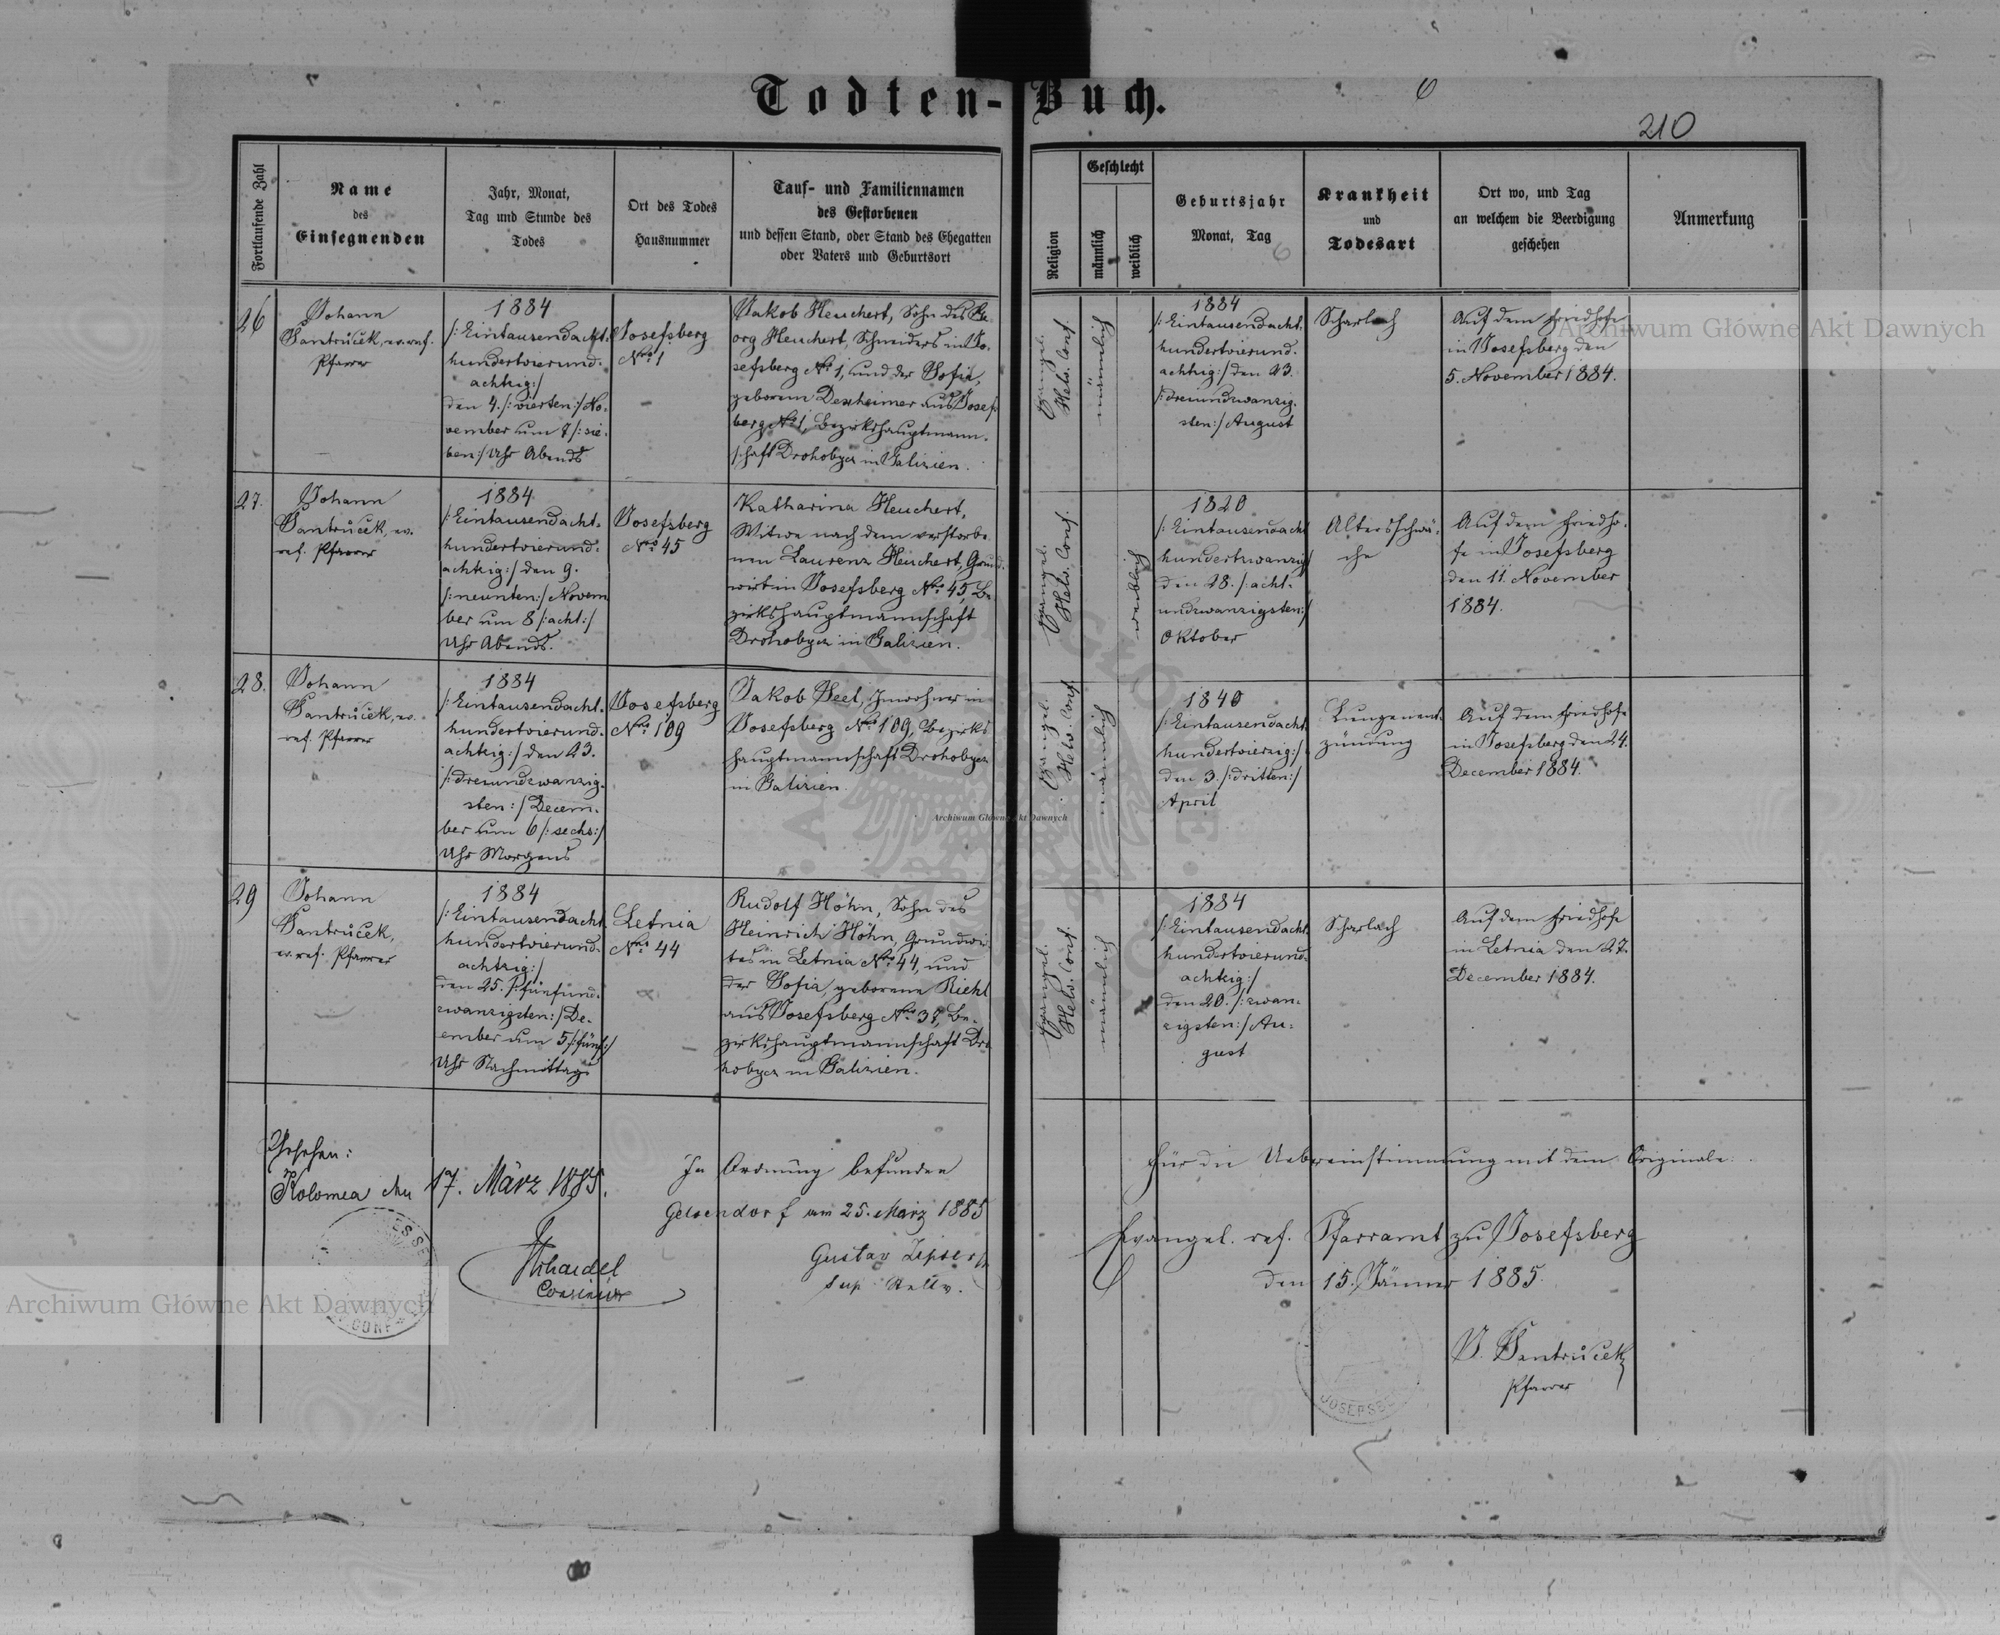 Todten-Buch.
6
210
Fortlaufende Zahl
Name
des
Einsegnenden
Jahr, Monat,
Tag und Stunde des
Todes
Ort des Todes
Hausnummer
Tauf- und Familiennamen
des Gestorbenen
und dessen Stand, oder Stand des Ehegatten
oder Vaters und Geburtsort
Religion
Geschlecht
männlich
weiblich
Geburtsjahr
Monat, Tag
6
Krankheit
und
Todesart
Ort wo, und Tag
an welchem die Beerdigung
geschehen
Anmerkung
26
Johann
Jantrůček, ev. ref.
Pfarrer
1884
/:Eintausendacht-
hundertvierund-
achtzig:/
den 4. /:vierten:/ No-
vember um 7 /:sie-
ben:/ Uhr Abends
Josefsberg
Nro 1
Jakob Heuchert, Sohn des Ge-
org Heuchert, Schneiders in Jo-
sefsberg Nro 1, und der Sofia,
geborenen Dexheimer aus Josefs
berg Nro 1, Bezirkshauptmann-
schaft Drohobycz in Galizien.
Evangel.
Helv. Conf.
männlich
1884
/:Eintausendacht-
hundertvierund-
achtzig:/ den 23.
/:dreiundzwanzig-
sten:/ August
Scharlach
Auf dem Friedhofe
in Josefsberg den
5. November 1884.
27.
Johann
Jantrůček, ev.
ref. Pfarrer
1884
/:Eintausendacht-
hundertvierund-
achtzig:/ den 9.
/:neunten:/ Novem
ber um 8 /:acht:/
Uhr Abends.
Josefsberg
Nro 45
Katharina Heuchert,
Witwe nach dem verstorbe-
nen Laurenz Heuchert, Grund-
wirt in Josefsberg Nro 45, Be-
zirkshauptmannschaft
Drohobycz in Galizien.
Evangel.
Helv. Conf.
weiblich
1820
/:Eintausendacht
hundertzwanzig
den 28. /:acht-
undzwanzigsten:/
Oktober
Altersschwä-
che
Auf dem Friedho-
fe in Josefsberg
den 11. November
1884.
28.
Johann
Jantrůček, ev.
ref. Pfarrer
1884
/:Eintausendacht-
hundertvierund-
achtzig:/ den 23.
/:dreiundzwanzig-
sten:/ Decem-
ber um 6 /:sechs:/
Uhr Morgens
Josefsberg
Nro 109
Jakob Inwohner in
Josefsberg Nro 109, Bezirks
hauptmannschaft Drohobycz
in Galizien.
Evangel.
Helv. Conf.
männlich
1840
/:Eintausendacht-
hundertvierzig:/
den 3. /:dritten:/
April
Lungenent-
zündung
Auf dem Friedhofe
in Josefsberg den 24.
December 1884.
29
Johann
Jantrůček,
ev. ref. Pfarrer
1884
/:Eintausendacht-
hundertvierund-
achtzig:/
den 25. /:fünfund-
zwanzigsten:/ De-
cember um 5 /:fünf:/
Uhr Nachmittags
Letnia
Nro 44
Rudolf Höhn, Sohn des
Heinrich Höhn, Grundwir-
tes in Letnia Nro 44, und
der Sofia, geborene Riehl
aus Josefsberg Nro 38, Be-
zirkshauptmannschaft Dro
hobycz in Galizien.
Evangel.
Helv. Conf.
männlich
1884
/:Eintausendacht
hundertvierund-
achtzig:/
den 20. /:zwan-
zigsten:/ Au-
gust
Scharlach
Auf dem Friedhofe
in Letnia den 27.
December 1884.
Gesehen:
Kolomea den 17. März 1885.
In Ordnung befunden
Gelsendorf am 25. März 1885
Gustav Zipser
Sup. Stellv.
Für die Uebereinstimmung mit dem Originale:
Evangel. ref. Pfarramt zu Josefsberg
den 15. Jänner 1885.
J. Jantrůček
Pfarrer
JOSEFSB
Archiwum Główne Akt Dawnych
Archiwum Główne Akt Dawnych
Archiwum Główne Akt Dawnych